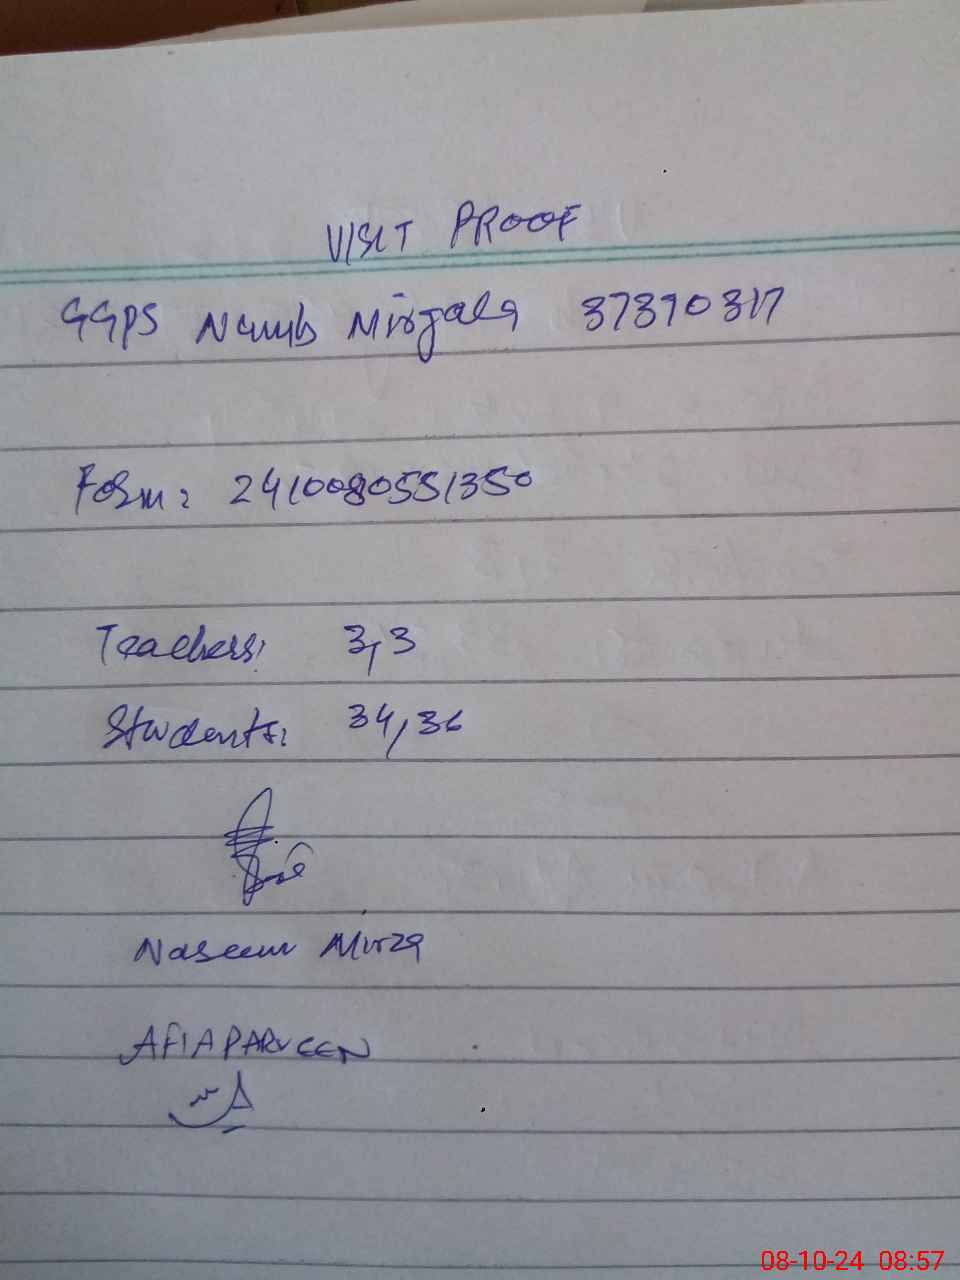 VISIT PROOF
GGPS Namb Mirjala 37370317
Form: 2410080551350
Teachers: 3,3
Students: 34,36
Naseem Mirza
AFIA PARVEEN
08-10-24 08:57